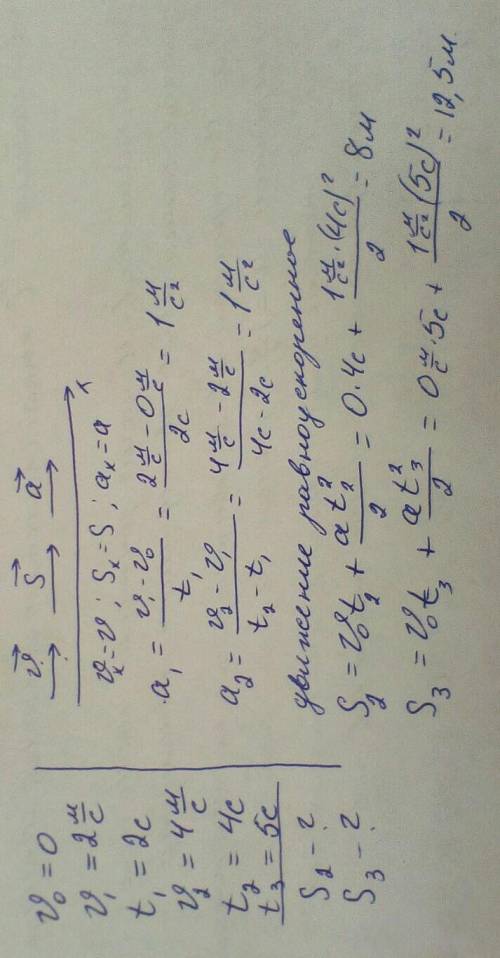 v₀ = 0
v₁ = 2 м/с
t₁ = 2с
v₂ = 4 м/с
t₂ = 4с
t₃ = 5с
S₂ - ?
S₃ - ?
v⃗ S⃗ a⃗
x
vₓ = v ; Sₓ = S ; aₓ = a
a₁ = (v₁ - v₀)/t₁ = (2 м/с - 0 м/с)/2с = 1 м/с²
a₂ = (v₂ - v₁)/(t₂ - t₁) = (4 м/с - 2 м/с)/(4с - 2с) = 1 м/с²
движение равноускоренное
S₂ = v₀t₂ + at₂²/2 = 0·4с + (1 м/с²·(4с)²)/2 = 8м
S₃ = v₀t₃ + at₃²/2 = 0 м/с·5с + (1 м/с²(5с)²)/2 = 12,5м